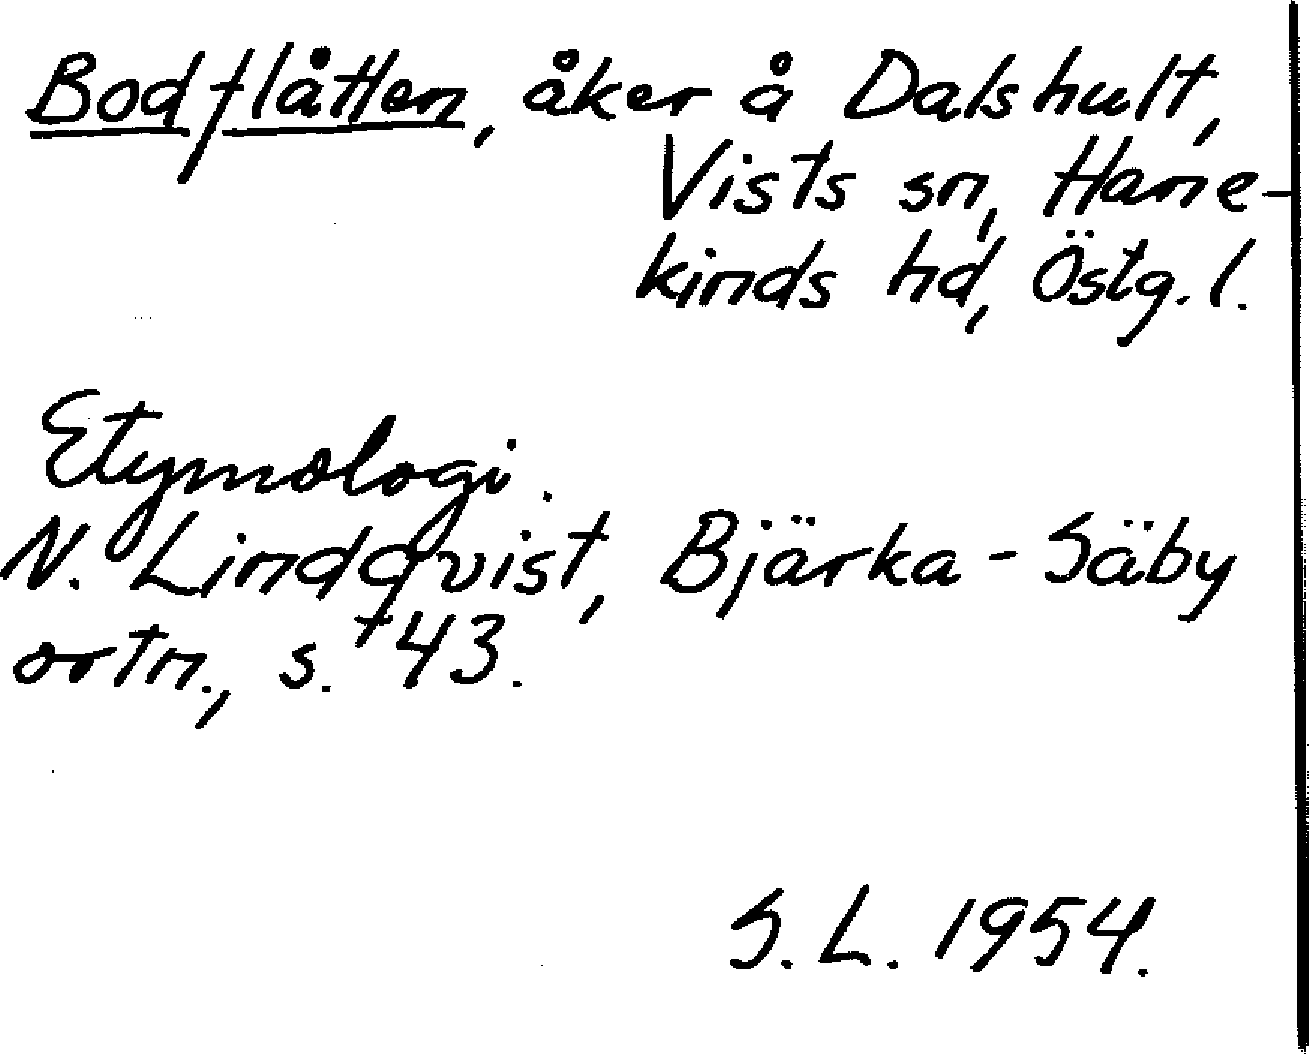 Bodflåtten, åker å Dalshult,
Vists sn, Hane-
kinds hd, Östg. l.
Etymologi.
N. Lindqvist, Bjärka-Säby
ortn., s. 43.
S. L. 1954.